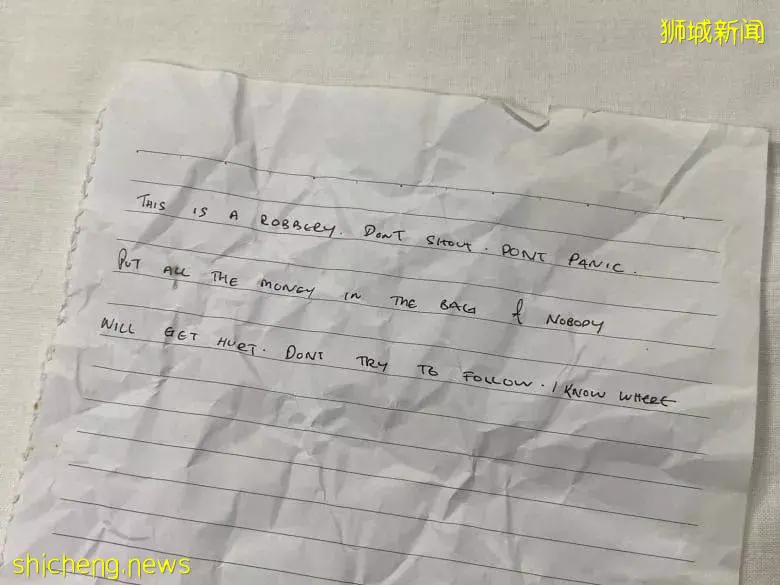 狮城新闻
THIS IS A ROBBERY. DONT SHOUT. DONT PANIC.
PUT ALL THE MONEY IN THE BAG & NOBODY
WILL GET HURT. DONT TRY TO FOLLOW. I KNOW WHERE
shicheng.news